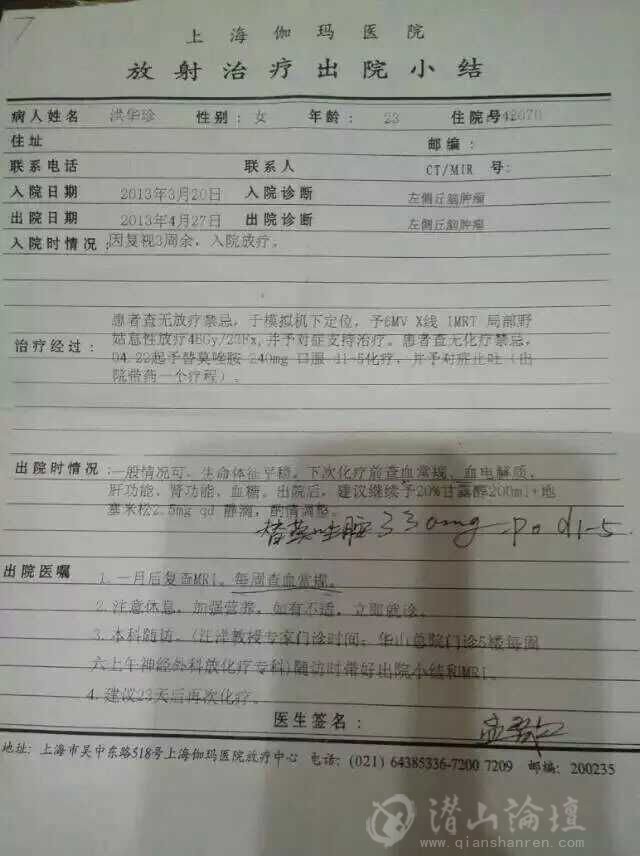 7
上海伽玛医院
放射治疗出院小结
病人姓名 洪华珍 性别：女 年龄： 23 住院号
住址 邮编：
联系电话 联系人 CT/MIR 号：
入院日期 2013年3月20日 入院诊断 左侧丘脑肿瘤
出院日期 2013年4月27日 出院诊断 左侧丘脑肿瘤
入院时情况：因复视3周余，入院放疗。
患者查无放疗禁忌，于模拟机下定位，予6MV X线 IMRT 局部野
治疗经过：姑息性放疗 并予对症支持治疗。患者查无化疗禁忌，
04.22起予替莫唑胺 240mg 口服 d1-5化疗，并予对症止吐（出
院带药一个疗程）。
出院时情况：一般情况可，生命体征平稳。下次化疗前查血常规、血电解质、
肝功能、肾功能、血糖。出院后，建议继续予20%甘露醇200ml+地
塞米松2.5mg qd 静滴，酌情调整。
替莫唑胺 330mg po d1-5
出院医嘱：1.一月后复查MRI。每周查血常规。
2.注意休息，加强营养，如有不适，立即就诊。
3.本科随访。（汪洋教授专家门诊时间：华山总院门诊5楼每周
六上午神经外科放化疗专科）随访时带好出院小结和MRI。
4.建议23天后再次化疗。
医生签名：
地址：上海市吴中东路518号上海伽玛医院放疗中心 电话：(021) 64385336-7200 7209 邮编：200235
潜山论坛
www.qianshanren.com